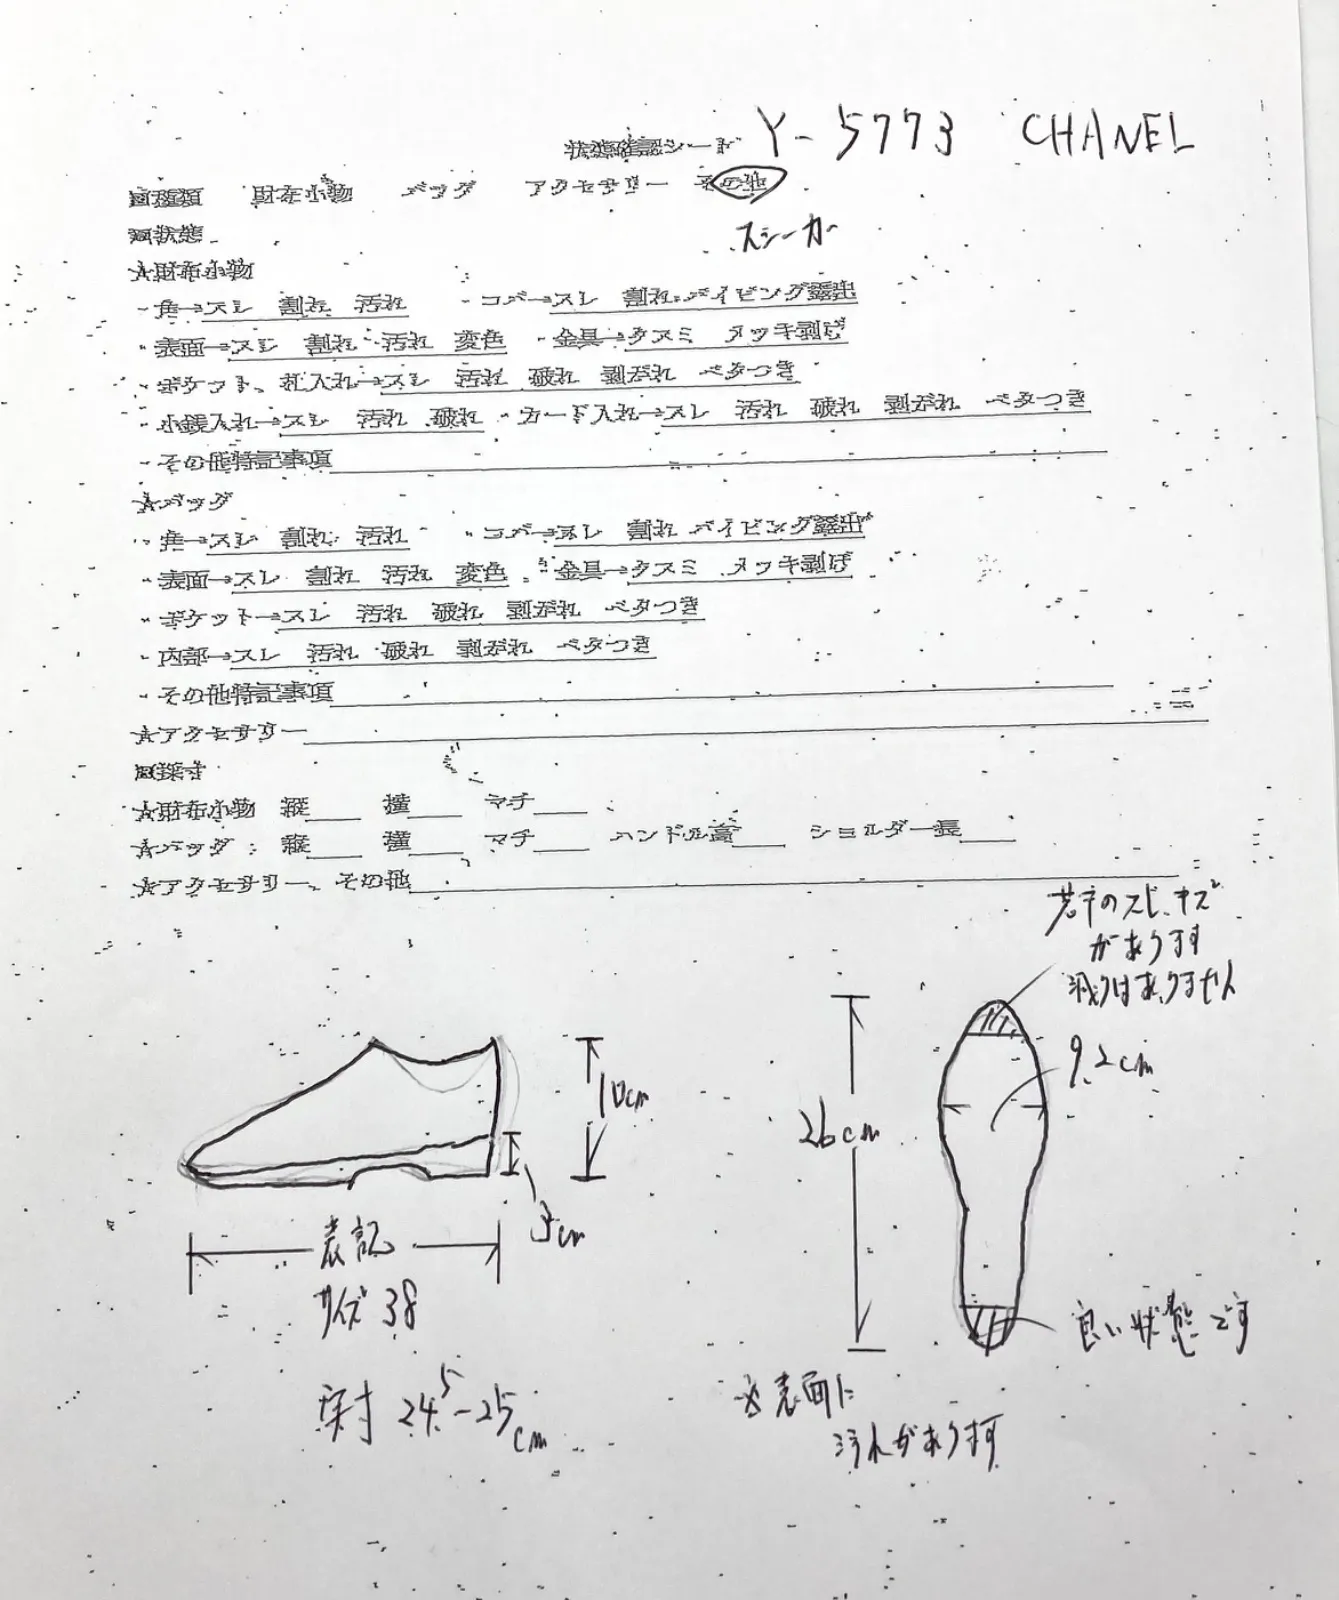 状態確認シート Y-5773 CHANEL
☑種類 財布小物 バッグ アクセサリー その他
スニーカー
☑状態
☆財布小物
・角→スレ 割れ 汚れ ・コバ→スレ 割れ パイピング露出
・表面→スレ 割れ 汚れ 変色 ・金具→クスミ メッキ剥げ
・ポケット、札入れ→スレ 汚れ 破れ 剥がれ ベタつき
・小銭入れ→スレ 汚れ 破れ ・カード入れ→スレ 汚れ 破れ 剥がれ ベタつき
・その他特記事項
☆バッグ
・角→スレ 割れ 汚れ ・コバ→スレ 割れ パイピング露出
・表面→スレ 割れ 汚れ 変色 ・金具→クスミ メッキ剥げ
・ポケット→スレ 汚れ 破れ 剥がれ ベタつき
・内部→スレ 汚れ 破れ 剥がれ ベタつき
・その他特記事項
☆アクセサリー
採寸
☆財布小物 縦 横 マチ
☆バッグ: 縦 横 マチ ハンドル高 ショルダー長
☆アクセサリー、その他
若干のスレ、キズ
があります
減りはありません
9.2cm
10cm
26cm
3cm
表記
サイズ 38
良い状態です
実寸 24.5-25cm
※表面に
汚れがあります